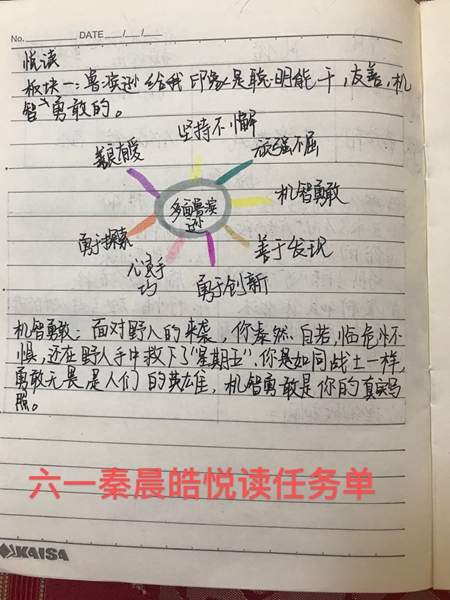 No. DATE / /
悦读
板块一:鲁滨逊给我印象是聪明能干,友善,机
智、勇敢的。
坚持不懈
善良有爱
顽强不屈
多面鲁滨
逊
机智勇敢
勇于探索
心灵手
巧
善于发现
勇于创新
机智勇敢:面对野人的来袭,你泰然自若,临危不
惧,还在野人手中救下了“星期五”,你是如同战士一样,
勇敢无畏是人们的英雄,机智勇敢是你的真实写
照。
六一秦晨皓悦读任务单
KAISA